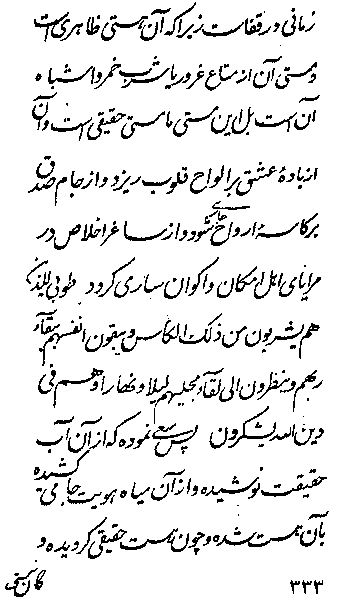 زمانی در قفات زیرا که آن هستی ظاهری است
و مستی آن از متاع غرور یا شرب خمر و اشباه
آن است بل این مستی ما مستی حقیقی است و آن
از بادهٔ عشق بر الواح قلوب ریزد و از جام صدق
بر کاسهٔ ارواح جاری شود و از ساغر اخلاص در
مرایای اهل امکان و اکوان ساری گردد طوبی للذین
هم یشربون من ذلک الکأس و یبقون انفسهم ببقاء
ربهم و ینظرون الی لقاء مجلیهم لیلا و نهارا و هم فی
دین الله یشکرون پس سعی نموده که از آن آب
حقیقت نوشیده و از آن میاه هویت جامی کشیده
بآن مست شده و چون مست حقیقی گردیده و
۳۳۳